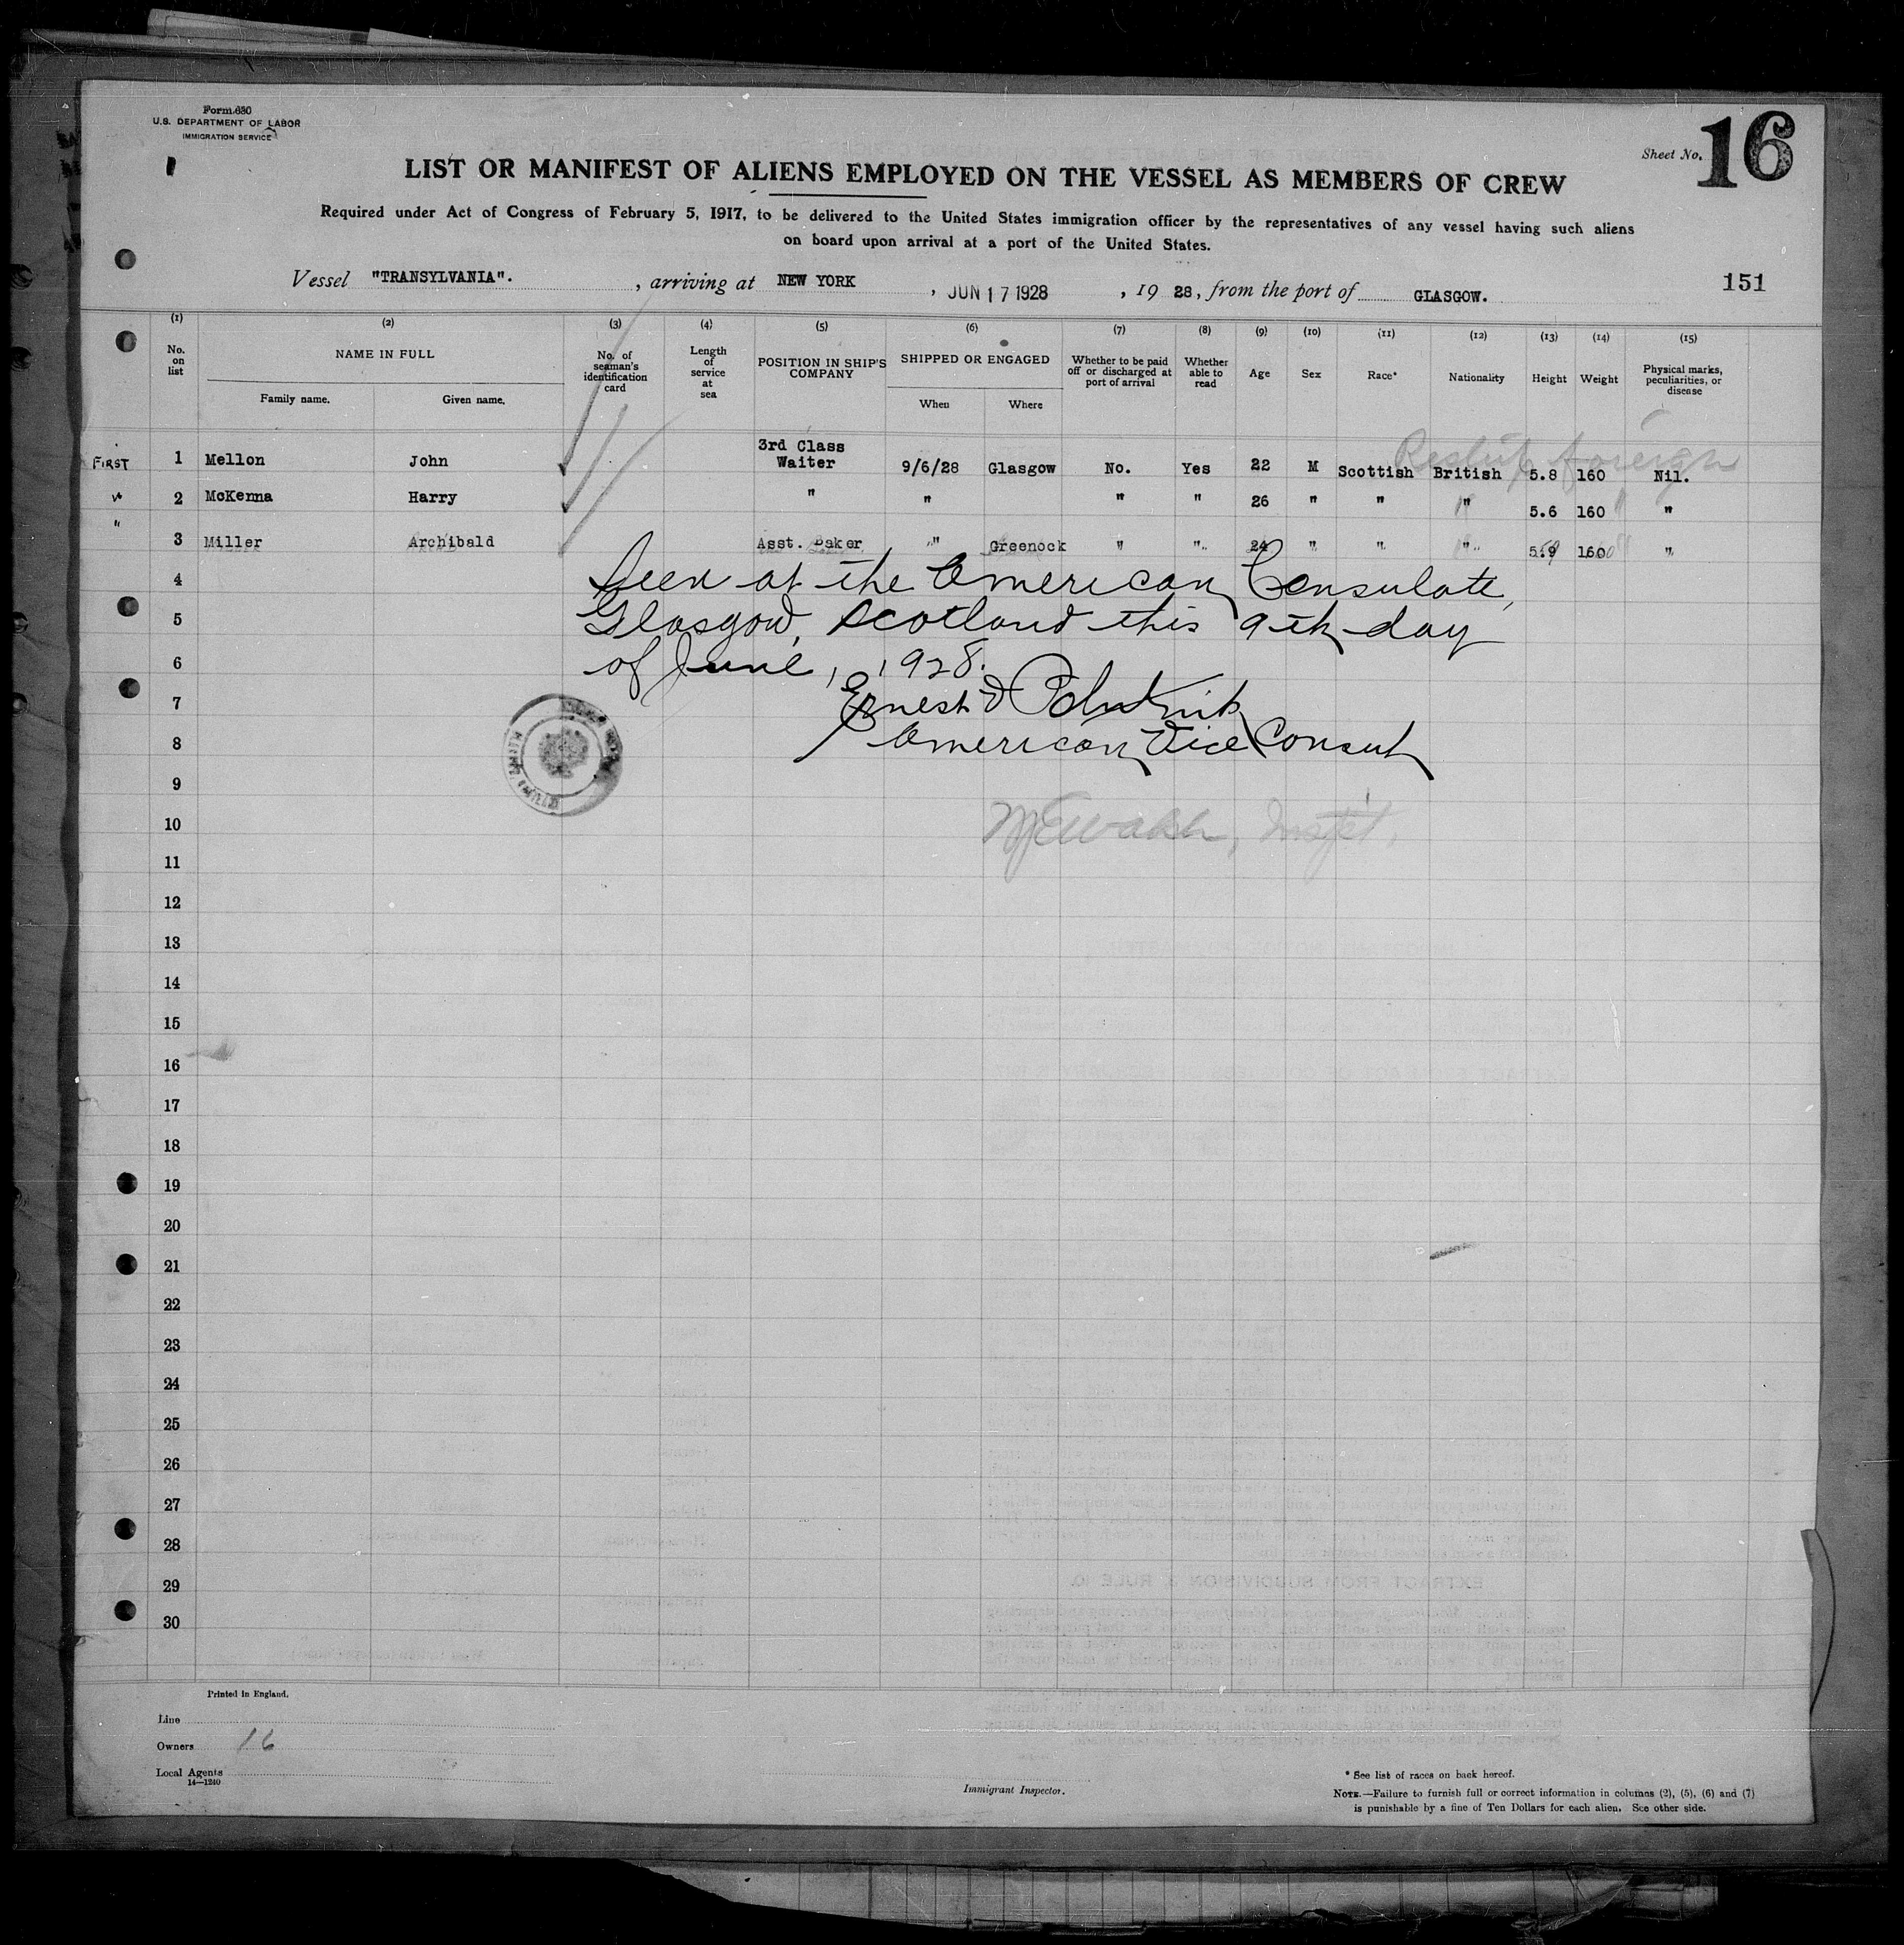 Form 630
U.S. DEPARTMENT OF LABOR
IMMIGRATION SERVICE
Sheet No. 16
LIST OR MANIFEST OF ALIENS EMPLOYED ON THE VESSEL AS MEMBERS OF CREW
Required under Act of Congress of February 5, 1917, to be delivered to the United States immigration officer by the representatives of any vessel having such aliens
on board upon arrival at a port of the United States.
Vessel "TRANSYLVANIA". , arriving at NEW YORK , JUN 17 1928 , 19 28, from the port of GLASGOW.
151
(1) (2) (3) (4) (5) (6) (7) (8) (9) (10) (11) (12) (13) (14) (15)
No. on list
NAME IN FULL
Family name. Given name.
No. of seaman's identification card
Length of service at sea
POSITION IN SHIP'S COMPANY
SHIPPED OR ENGAGED
When Where
Whether to be paid off or discharged at port of arrival
Whether able to read
Age
Sex
Race*
Nationality
Height
Weight
Physical marks, peculiarities, or disease
foreign
FIRST 1 Mellon John 3rd Class Waiter 9/6/28 Glasgow No. Yes 22 M Scottish British 5.8 160 Nil.
" 2 McKenna Harry " " " " 26 " " " 5.6 160 "
" 3 Miller Archibald Asst. Baker " Greenock " " 24 " " " 5.9 160 "
4
Seen at the American Consulate,
5
Glasgow, Scotland this 9th day
6
of June, 1928.
7
Ernest
8
American Vice Consul
9
10
11
12
13
14
15
16
17
18
19
20
21
22
23
24
25
26
27
28
29
30
Printed in England.
Line
Owners 16
Local Agents
14—1240
Immigrant Inspector.
* See list of races on back hereof.
NOTE.—Failure to furnish full or correct information in columns (2), (5), (6) and (7)
is punishable by a fine of Ten Dollars for each alien. See other side.